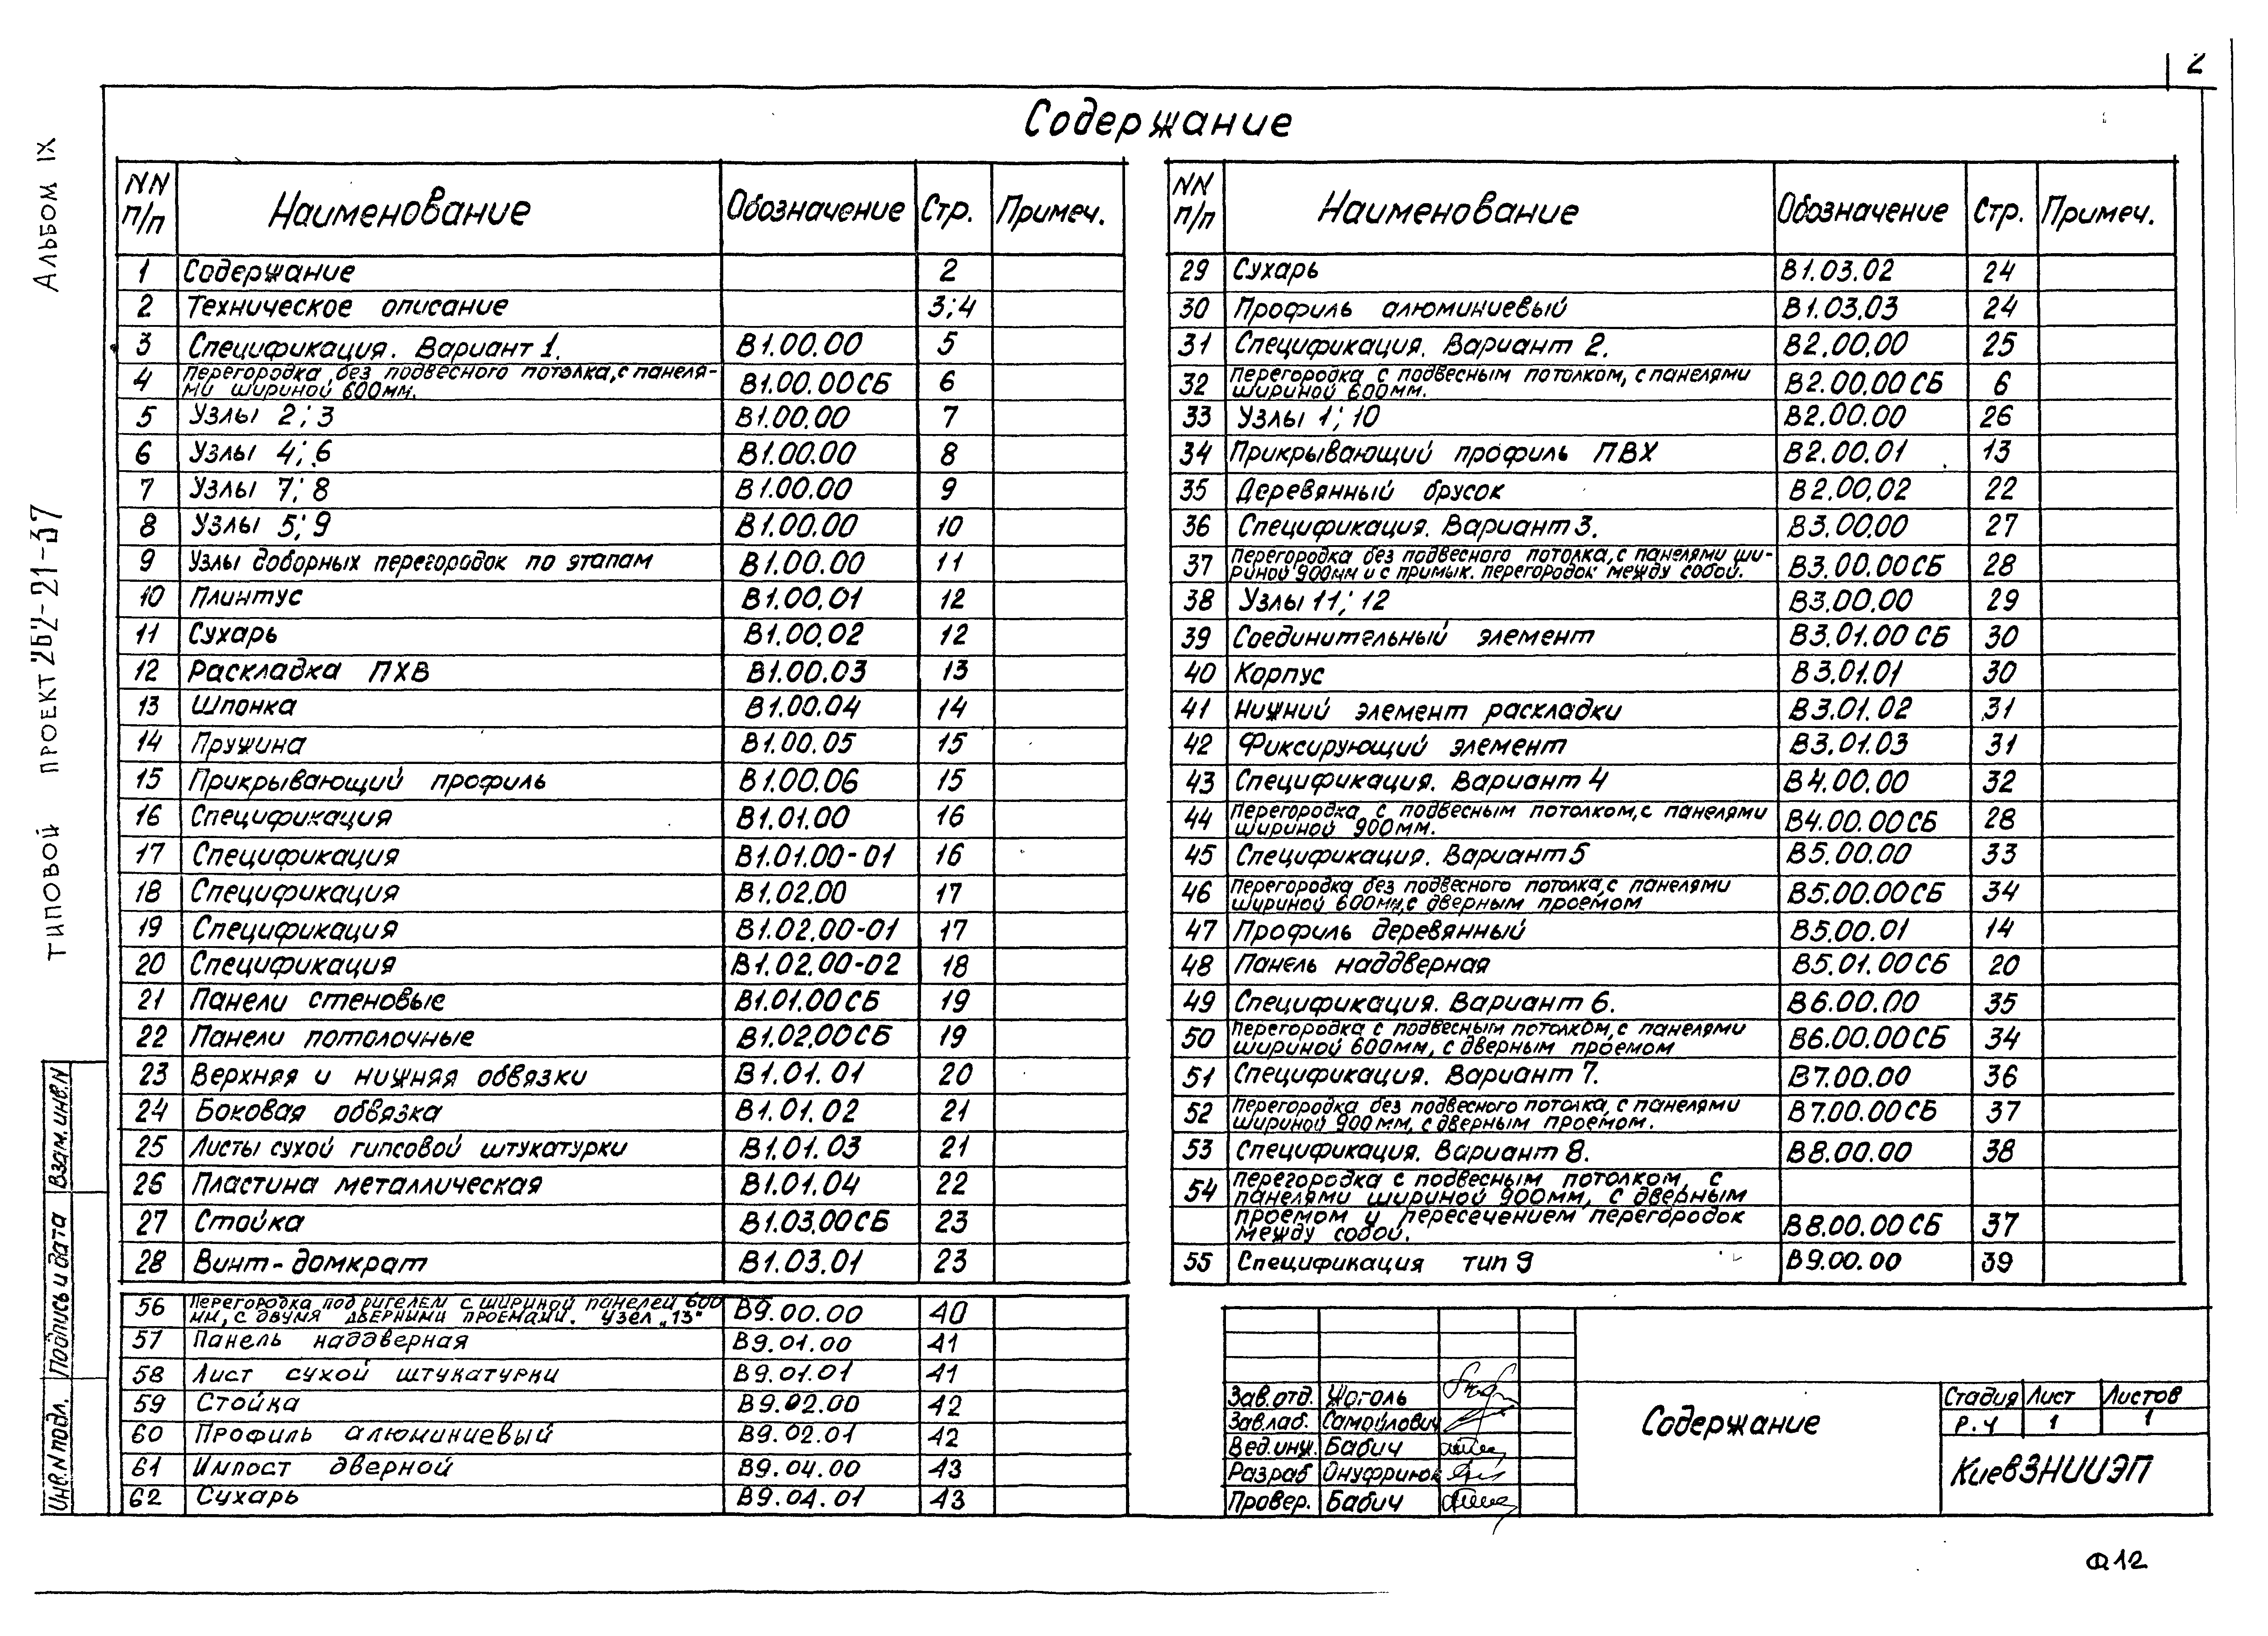 2
Содержание
NN п/п Наименование Обозначение Стр. Примеч.
1 Содержание 2
2 Техническое описание 3;4
3 Спецификация. Вариант 1. В1.00.00 5
4 Перегородка без подвесного потолка, с панеля-
ми шириной 600мм. В1.00.00СБ 6
5 Узлы 2;3 В1.00.00 7
6 Узлы 4;6 В1.00.00 8
7 Узлы 7;8 В1.00.00 9
8 Узлы 5;9 В1.00.00 10
9 Узлы доборных перегородок по этапам В1.00.00 11
10 Плинтус В1.00.01 12
11 Сухарь В1.00.02 12
12 Раскладка ПХВ В1.00.03 13
13 Шпонка В1.00.04 14
14 Пружина В1.00.05 15
15 Прикрывающий профиль В1.00.06 15
16 Спецификация В1.01.00 16
17 Спецификация В1.01.00-01 16
18 Спецификация В1.02.00 17
19 Спецификация В1.02.00-01 17
20 Спецификация В1.02.00-02 18
21 Панели стеновые В1.01.00СБ 19
22 Панели потолочные В1.02.00СБ 19
23 Верхняя и нижняя обвязки В1.01.01 20
24 Боковая обвязка В1.01.02 21
25 Листы сухой гипсовой штукатурки В1.01.03 21
26 Пластина металлическая В1.01.04 22
27 Стойка В1.03.00СБ 23
28 Винт-домкрат В1.03.01 23
56 Перегородка под ригелем с шириной панелей 600
мм, с двумя дверными проемами. Узел „13" В9.00.00 40
57 Панель наддверная В9.01.00 41
58 Лист сухой штукатурки В9.01.01 41
59 Стойка В9.02.00 42
60 Профиль алюминиевый В9.02.01 42
61 Импост дверной В9.04.00 43
62 Сухарь В9.04.01 43
NN п/п Наименование Обозначение Стр. Примеч.
29 Сухарь В1.03.02 24
30 Профиль алюминиевый В1.03.03 24
31 Спецификация. Вариант 2. В2.00.00 25
32 Перегородка с подвесным потолком, с панелями
шириной 600мм. В2.00.00СБ 6
33 Узлы 1;10 В2.00.00 26
34 Прикрывающий профиль ПВХ В2.00.01 13
35 Деревянный брусок В2.00.02 22
36 Спецификация. Вариант 3. В3.00.00 27
37 Перегородка без подвесного потолка, с панелями ши-
риной 900мм и с примык. перегородок между собой. В3.00.00СБ 28
38 Узлы 11;12 В3.00.00 29
39 Соединительный элемент В3.01.00СБ 30
40 Корпус В3.01.01 30
41 Нижний элемент раскладки В3.01.02 31
42 Фиксирующий элемент В3.01.03 31
43 Спецификация. Вариант 4 В4.00.00 32
44 Перегородка с подвесным потолком, с панелями
шириной 900мм. В4.00.00СБ 28
45 Спецификация. Вариант 5 В5.00.00 33
46 Перегородка без подвесного потолка, с панелями
шириной 600мм, с дверным проемом В5.00.00СБ 34
47 Профиль деревянный В5.00.01 14
48 Панель наддверная В5.01.00СБ 20
49 Спецификация. Вариант 6. В6.00.00 35
50 Перегородка с подвесным потолком, с панелями
шириной 600мм, с дверным проемом В6.00.00СБ 34
51 Спецификация. Вариант 7. В7.00.00 36
52 Перегородка без подвесного потолка, с панелями
шириной 900мм, с дверным проемом. В7.00.00СБ 37
53 Спецификация. Вариант 8. В8.00.00 38
54 Перегородка с подвесным потолком, с
панелями шириной 900мм, с дверным
проемом и пересечением перегородок
между собой. В8.00.00СБ 37
55 Спецификация тип 9 В9.00.00 39
Зав.отд. Жоголь
Зав.лаб. Самойлович
Вед.инж. Бабич
Разраб Онуфриюк
Провер. Бабич
Содержание
Стадия Лист Листов
Р.Ч 1 1
КиевЗНИИЭП
Ф12
Альбом IX
Типовой проект 262-21-37
Взам.инв.N
Подпись и дата
Инв.N подл.